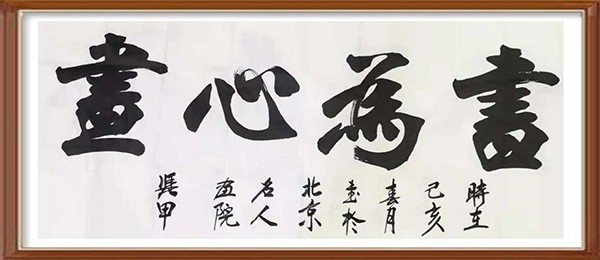 書為心畫
時在
己亥
春月
書於
北京
名人
画院
甲